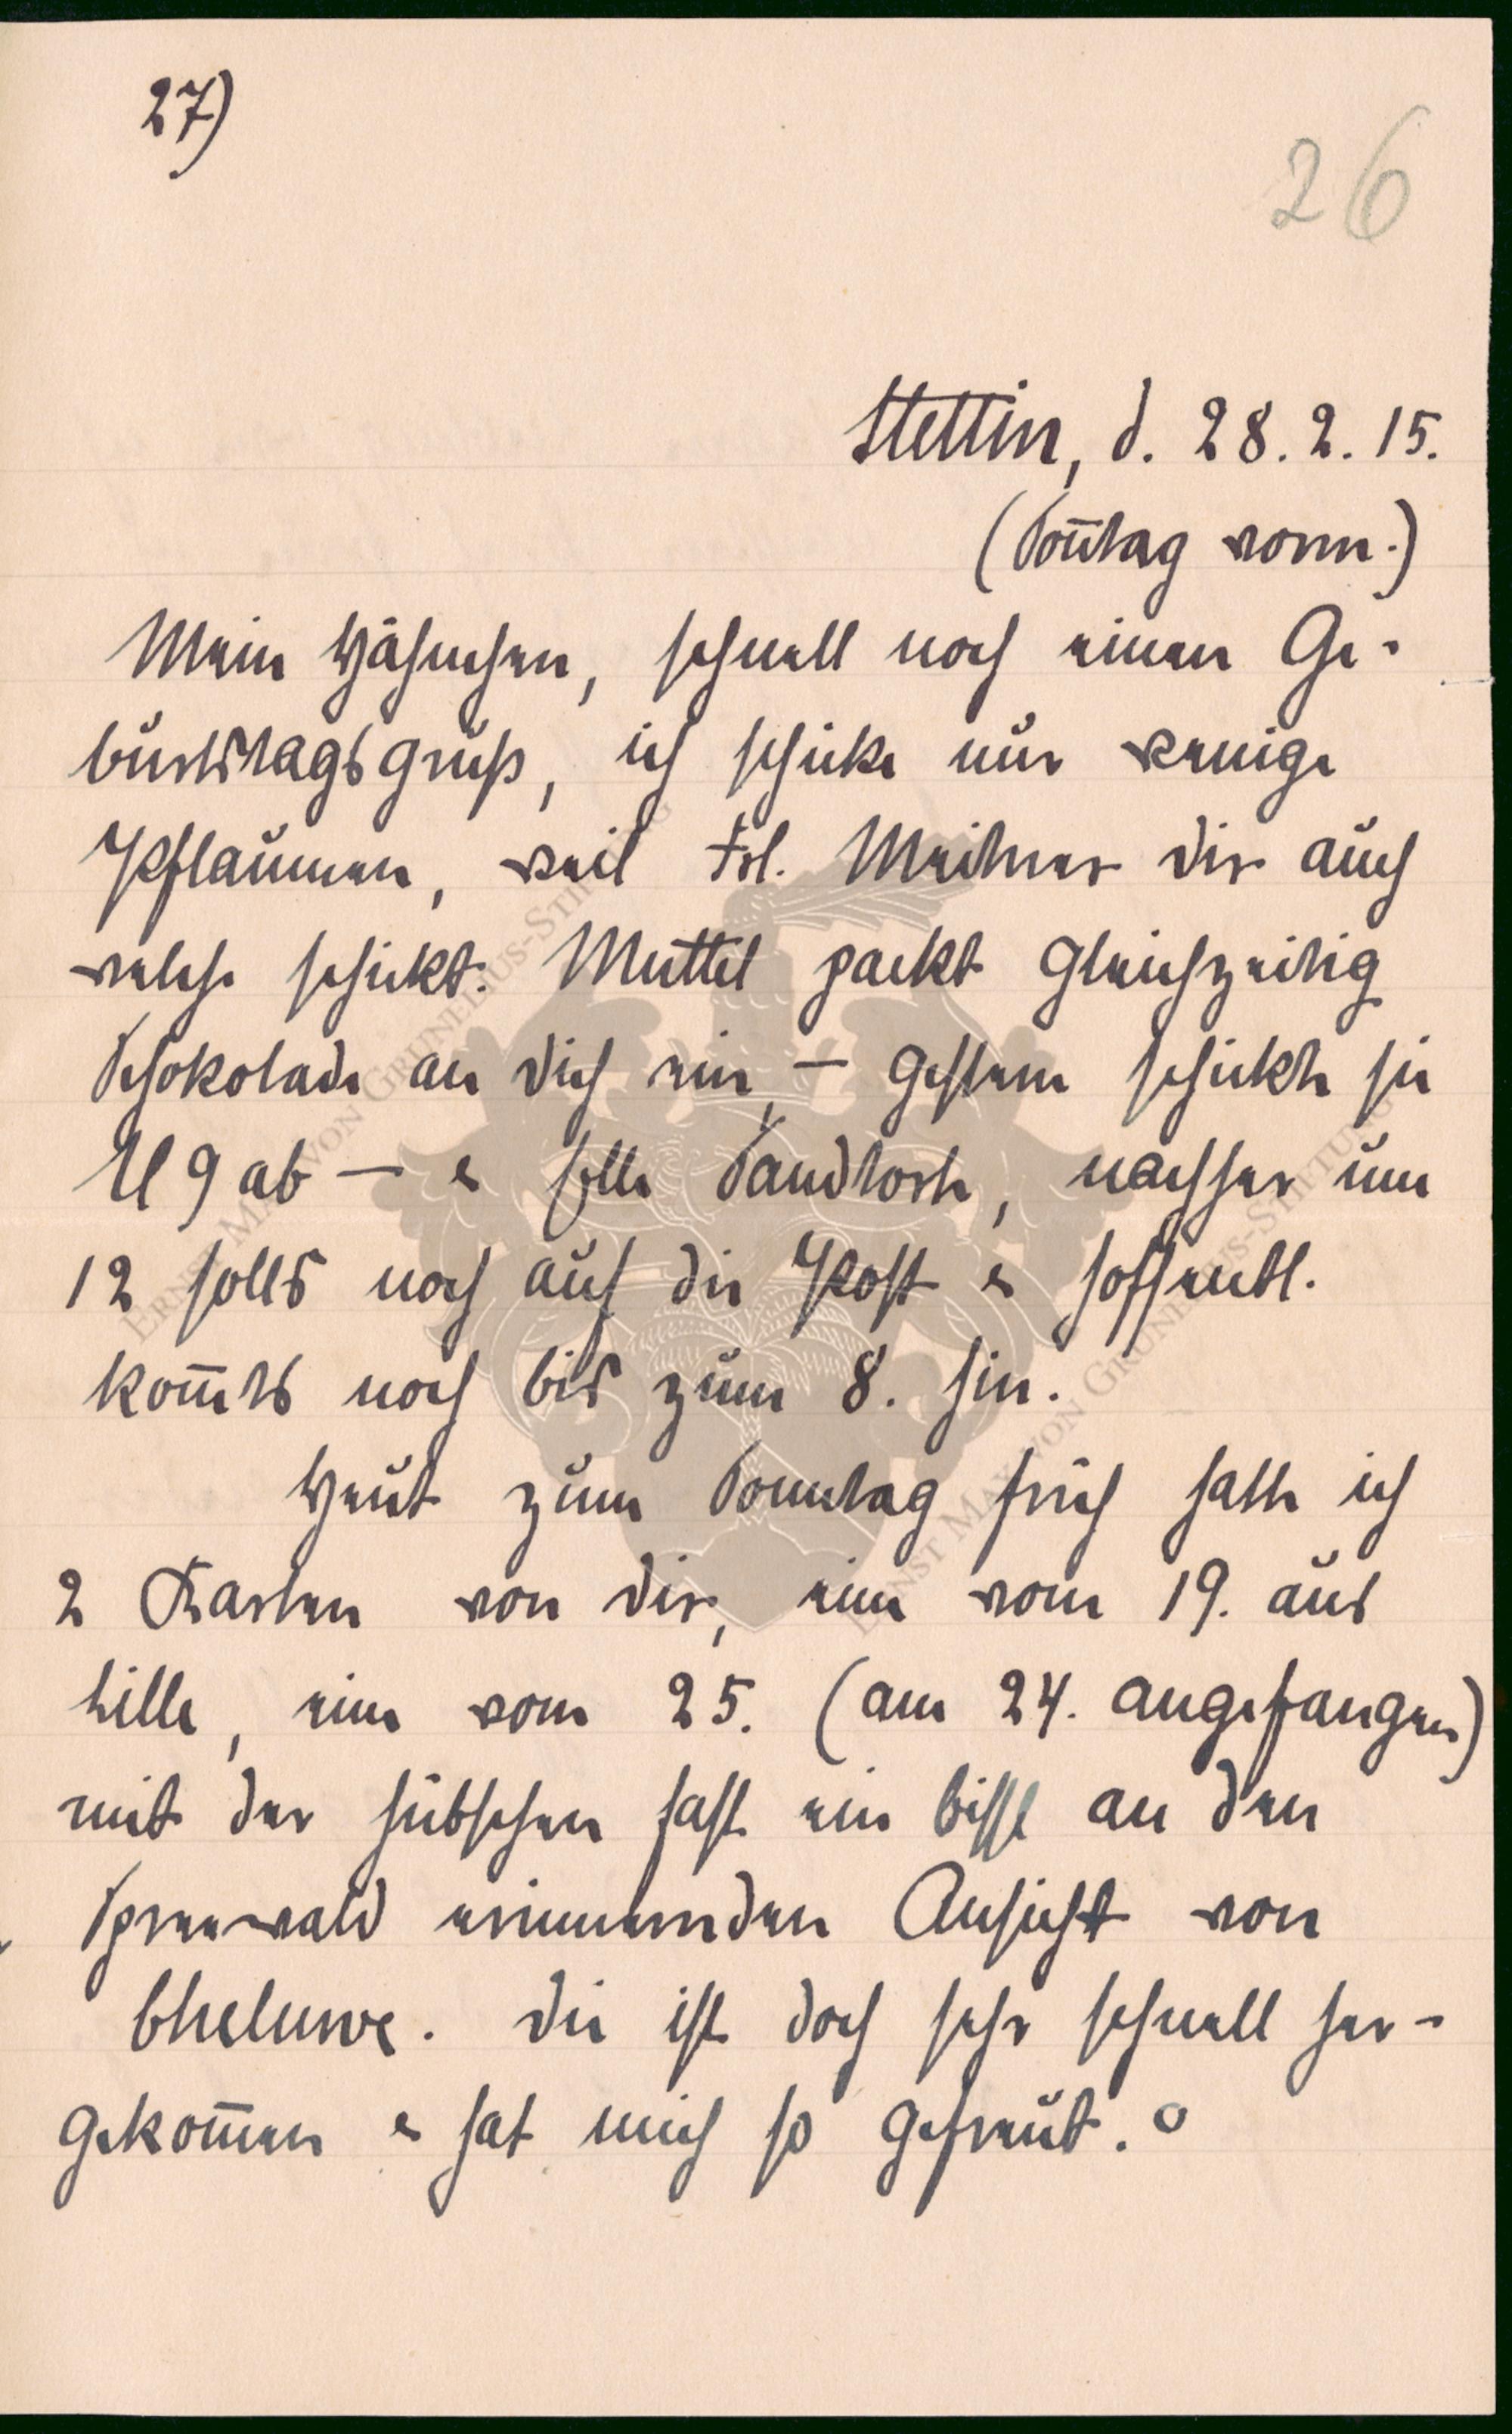 27)
26
Stettin, d. 28. 2. 15.
(Son̄tag vorm.)
Mein Häschen, schnell noch einen Ge-
burtstagsgruß, ich schicke nur wenige
Pflaumen, weil Frl. Meihner dir auch
welche schickt. Muttel packt gleichzeitig
Schokolade an dich ein, – gestern schickte sie
U 9 ab – & helle Sandtorte, nachher um
12 solls noch auf die Post & hoffentl.
kom̄ts noch bis zum 8. hin.
Heut zum Sonntag früh hatte ich
2 Karten von dir, eine vom 19. aus
Lille, eine vom 25. (am 24. angefangen)
mit der hübschen fast ein bissl an den
Spreewald erinnernden Ansicht von
Gheluwe. Die ist doch sehr schnell her-
gekom̄en & hat mich so gefreut.
ERNST MAX VON GRUNELIUS-STIFTUNG
ERNST MAX VON GRUNELIUS-STIFTUNG